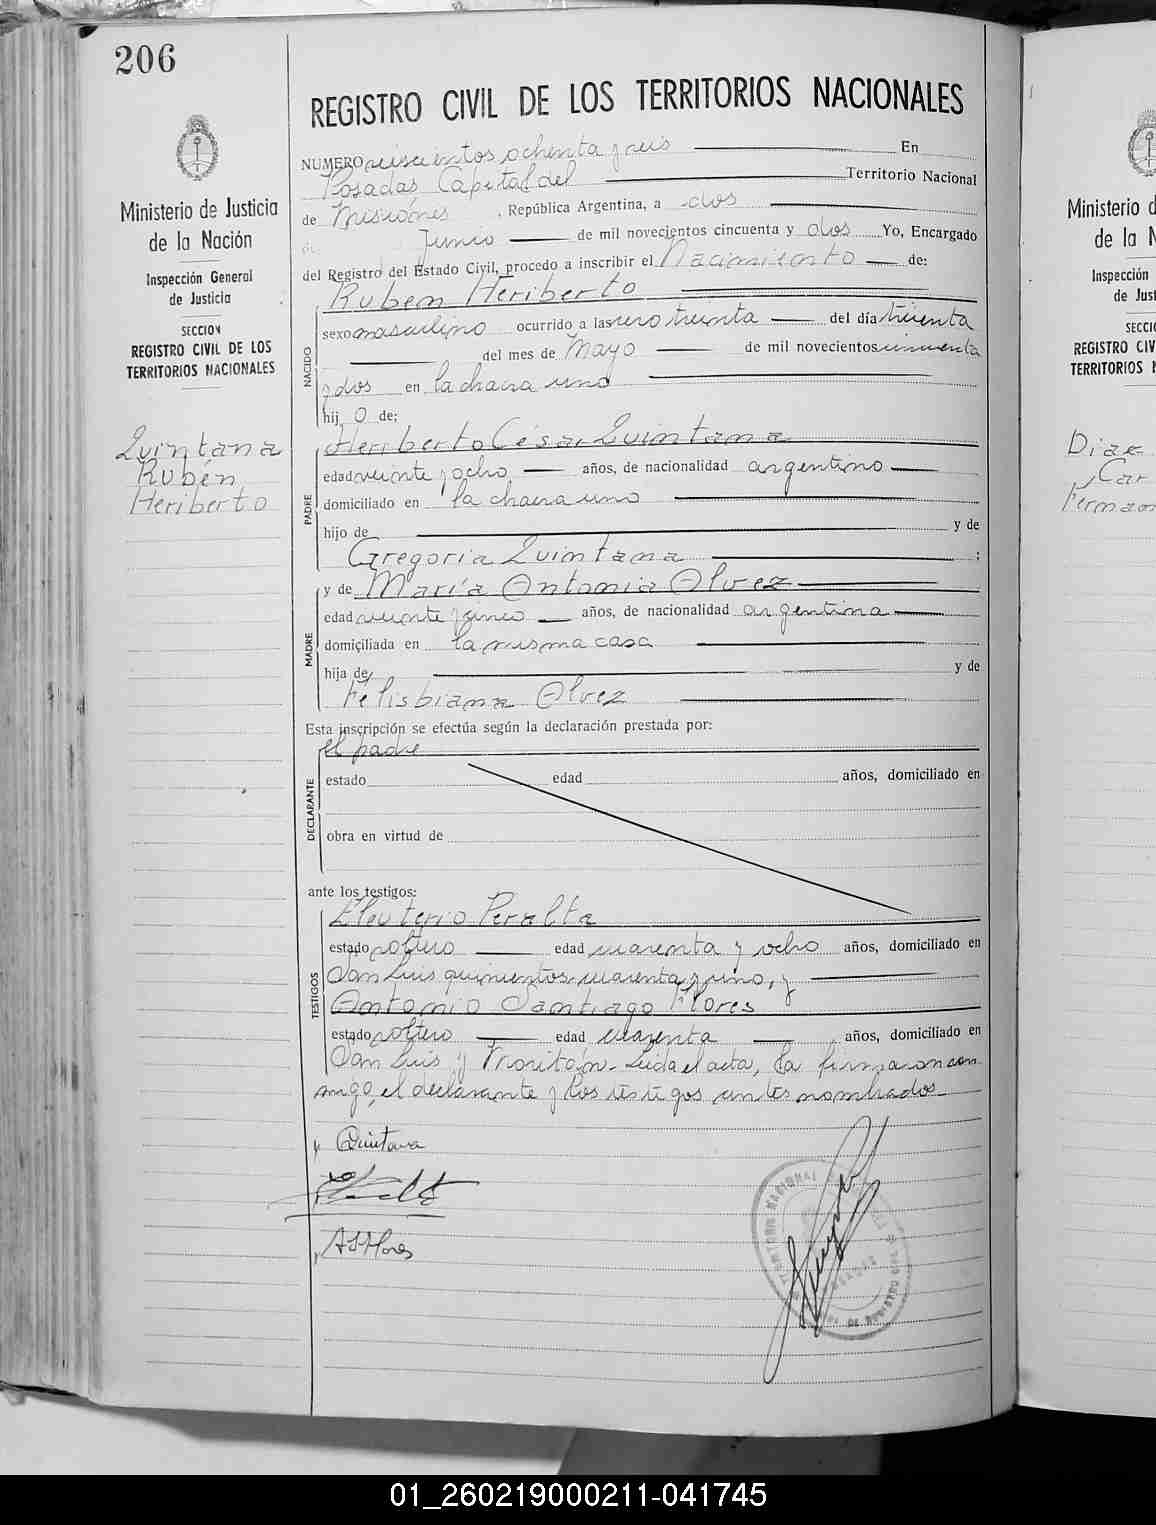 206
REGISTRO CIVIL DE LOS TERRITORIOS NACIONALES
Ministerio de Justicia
de la Nación
Inspección General
de Justicia
SECCION
REGISTRO CIVIL DE LOS
TERRITORIOS NACIONALES
Quintana
Rubén
Heriberto
NUMERO seiscientos ochenta y seis En
Posadas Capital del Territorio Nacional
de Misiónes, República Argentina, a dos
de Junio de mil novecientos cincuenta y dos Yo, Encargado
del Registro del Estado Civil, procedo a inscribir el Nacimiento de:
NACIDO
Ruben Heriberto
sexo masculino ocurrido a las cero treinta del día treinta
del mes de Mayo de mil novecientos cincuenta
y dos en la chacra uno
hij o de:
PADRE
Heriberto César Quintana
edad veinte y ocho años, de nacionalidad argentino
domiciliado en la chacra uno
hijo de y de
Gregoria Quintana ;
MADRE
y de María Antonia Olvez
edad veinte y cinco años, de nacionalidad argentina
domiciliada en la misma casa
hija de y de
Felisbiana Olvez
Esta inscripción se efectúa según la declaración prestada por:
DECLARANTE
el padre
estado edad años, domiciliado en
obra en virtud de
ante los testigos:
TESTIGOS
Eleuterio Peralta
estado soltero edad cuarenta y ocho años, domiciliado en
San Luis quinientos cuarenta y uno, y
Antonio Santiago Flores
estado soltero edad cuarenta años, domiciliado en
San Luis y Tronitán. Leida el acta, la firmaron con
migo, el declarante y los testigos antes nombrados.
Quintana
ASFlores
Ministerio d
de la N
Inspección
de Just
SECCI
REGISTRO CIV
TERRITORIOS N
Diaz
Car
Herman
01_260219000211-041745